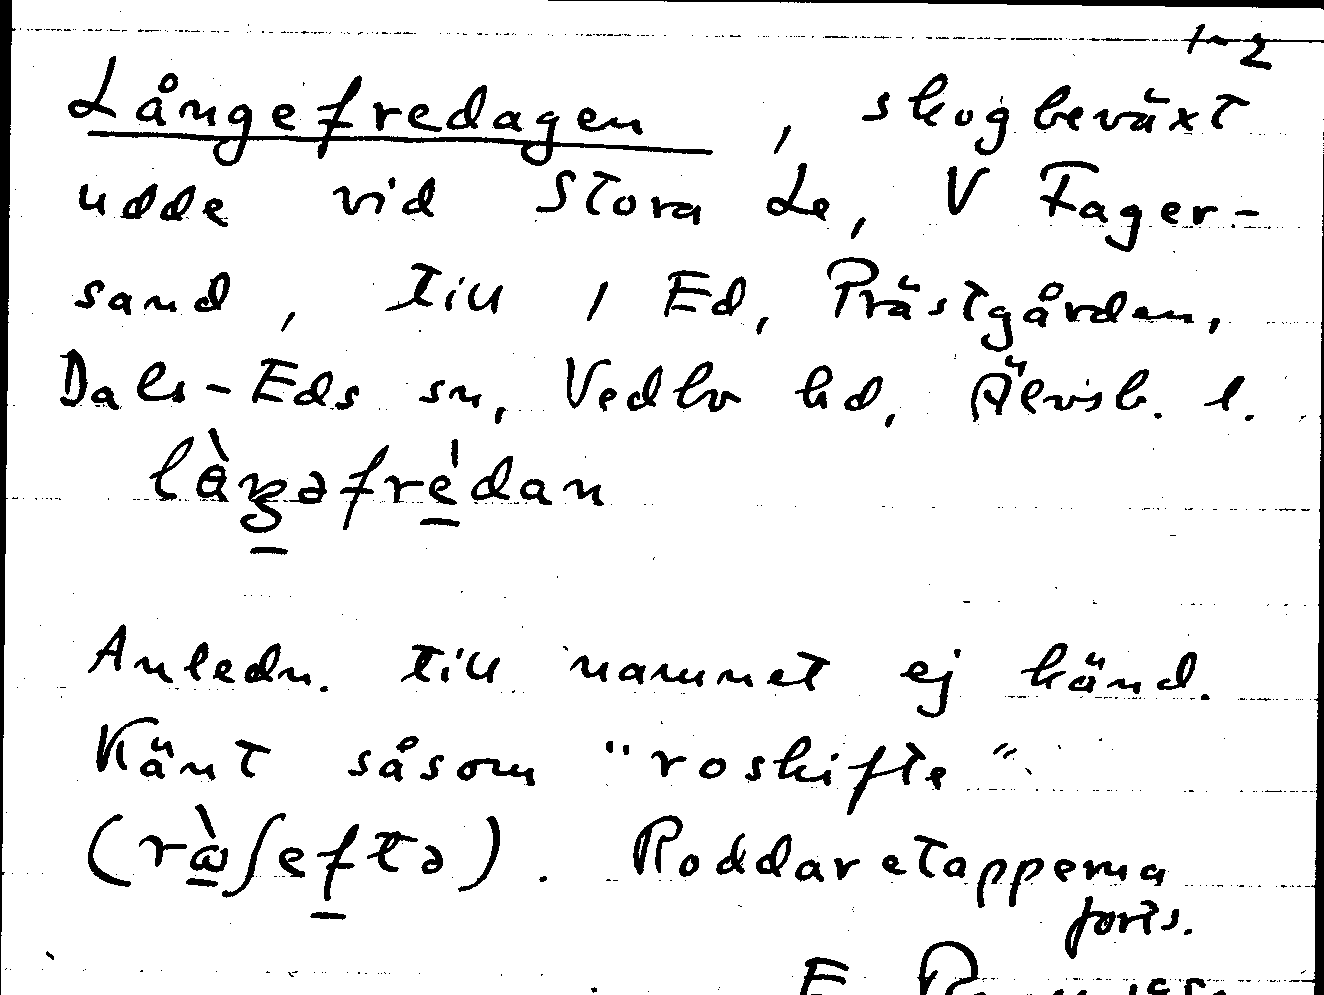 1-2
Långefredagen, skogbeväxt
udde vid Stora Le, V Fager-
sand, till 1 Ed, Prästgården,
Dals-Eds sn, Vedbo hd, Älvsb. l.
Anledn. till namnet ej känd.
Känt såsom "roskifte"
Roddaretapperna
forts.